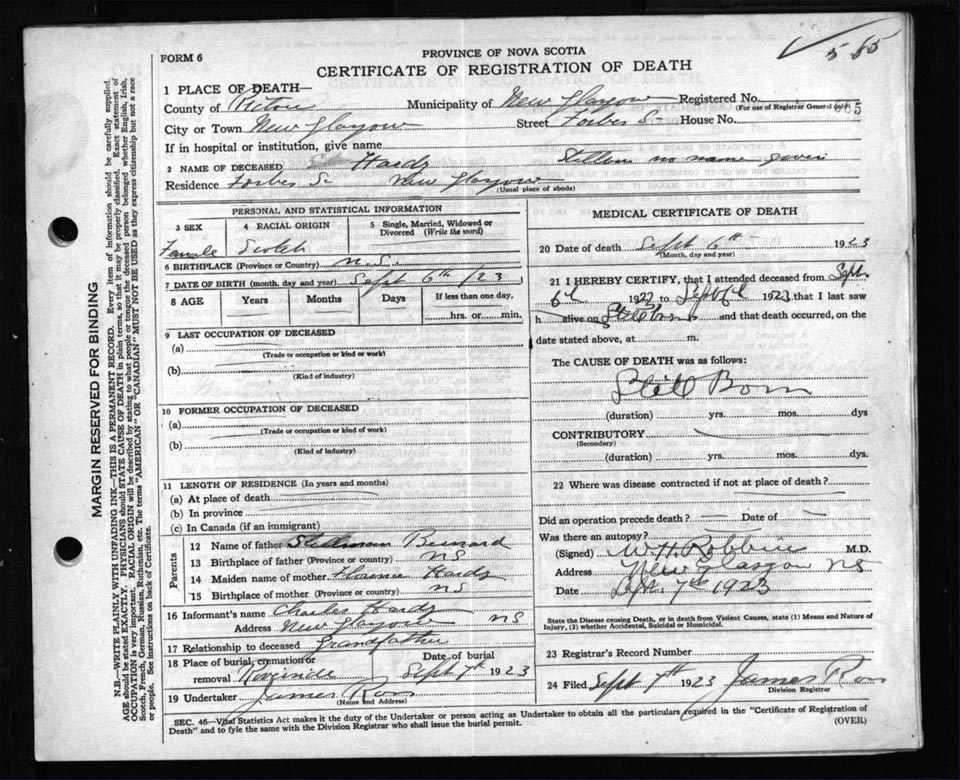 555
FORM 6
PROVINCE OF NOVA SCOTIA
CERTIFICATE OF REGISTRATION OF DEATH
1 PLACE OF DEATH—
County of Pictou Municipality of New Glasgow Registered No.
(For use of Registrar General only)
City or Town New Glasgow Street Forbes St House No.
If in hospital or institution, give name
2 NAME OF DECEASED Hardy Stillborn no name given
Residence Forbes St New Glasgow
(Usual place of abode)
PERSONAL AND STATISTICAL INFORMATION
3 SEX
Female
4 RACIAL ORIGIN
Scotch
5 Single, Married, Widowed or Divorced (Write the word)
6 BIRTHPLACE (Province or Country) N.S.
7 DATE OF BIRTH (month, day and year) Sept 6th /23
8 AGE Years Months Days If less than one day,
hrs. or min.
9 LAST OCCUPATION OF DECEASED
(a)
(Trade or occupation or kind or work)
(b)
(Kind of industry)
10 FORMER OCCUPATION OF DECEASED
(a)
(Trade or occupation or kind of work)
(b)
(Kind of industry)
11 LENGTH OF RESIDENCE (In years and months)
(a) At place of death
(b) In province
(c) In Canada (if an immigrant)
Parents
12 Name of father Stillman Bernard
13 Birthplace of father (Province or country) NS
14 Maiden name of mother Florence Hardy
15 Birthplace of mother (Province or country) NS
16 Informant's name Charles Hardy
Address New Glasgow NS
17 Relationship to deceased Grandfather
18 Place of burial, cremation or removal Date of burial Sept 7th 1923
19 Undertaker James Ross
(Name and Address)
MEDICAL CERTIFICATE OF DEATH
20 Date of death Sept 6th 1923
(Month, day and year)
21 I HEREBY CERTIFY, that I attended deceased from Sept.
6th 1923 to Sept 6th 1923 that I last saw
h alive on Stillborn and that death occurred, on the
date stated above, at m.
The CAUSE OF DEATH was as follows:
Still Born
(duration) yrs. mos. dys
CONTRIBUTORY
(Secondary)
(duration) yrs. mos. dys.
22 Where was disease contracted if not at place of death?
Did an operation precede death — Date of —
Was there an autopsy?
(Signed) W.H. Robbins M.D.
Address New Glasgow NS
Date Sept. 7th 1923
State the Disease causing Death, or in death from Violent Causes, state (1) Means and Nature of
Injury, (2) whether Accidental, Suicidal or Homicidal.
23 Registrar's Record Number
24 Filed Sept 7th 1923 James Ross
Division Registrar
SEC. 46—Vital Statistics Act makes it the duty of the Undertaker or person acting as Undertaker to obtain all the particulars required in the "Certificate of Registration of
Death" and to fyle the same with the Division Registrar who shall issue the burial permit.
(OVER)
MARGIN RESERVED FOR BINDING
N.B.—WRITE PLAINLY WITH UNFADING INK—THIS IS A PERMANENT RECORD. Every item of information should be carefully supplied.
AGE should be stated EXACTLY. PHYSICIANS should STATE CAUSE OF DEATH in plain terms, so that it may be properly classified. Exact statement of
OCCUPATION is very important. RACIAL ORIGIN will be described by stating to what people or tongue the deceased person belonged whether English, Irish,
Scotch, French, German, Russian, Ruthenian, etc. The terms "AMERICAN" OR "CANADIAN" MUST NOT BE USED as they express citizenship but not a race
or people. See instructions on back of Certificate.